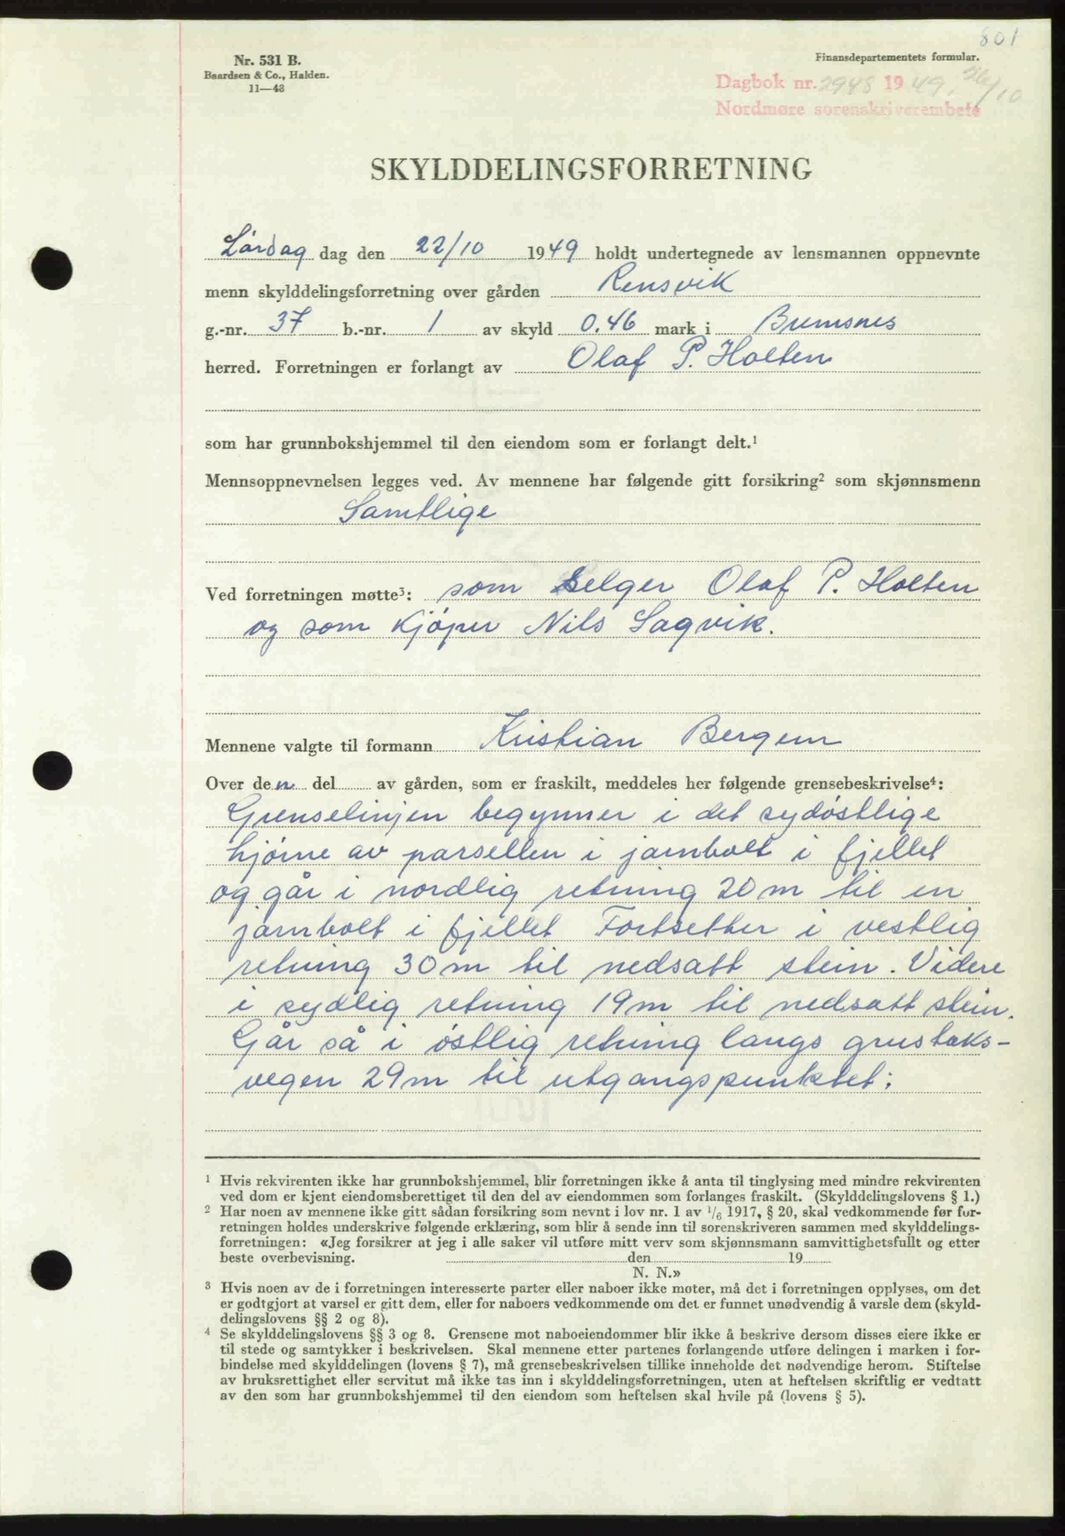 801
Nr. 531 B.
Baardsen & Co., Halden.
11—48
Finansdepartementets formular.
Dagbok nr. 2948 1949. 26/10
Nordmøre sorenskriverembete
SKYLDDELINGSFORRETNING
Lördag dag den 22/10 1949 holdt undertegnede av lensmannen oppnevnte
menn skylddelingsforretning over gården Rensvik
g.-nr. 37 b.-nr. 1 av skyld 0.46 mark i Bremsnes
herred. Forretningen er forlangt av Olaf P. Holten
som har grunnbokshjemmel til den eiendom som er forlangt delt.¹
Mennsoppnevnelsen legges ved. Av mennene har følgende gitt forsikring² som skjønnsmenn
Samtlige
Ved forretningen møtte³: som Selger Olaf P. Holten
og som Kjöper Nils Sagvik.
Mennene valgte til formann Kristian Bergem
Over den del av gården, som er fraskilt, meddeles her følgende grensebeskrivelse⁴:
Grenselinjen begynner i det sydöstlige
hjörne av parsellen i jarnbolt i fjellet
og går i nordlig retning 20 m til en
jarnbolt i fjellet Fortsetter i vestlig
retning 30 m til nedsatt stein. Videre
i sydlig retning 19 m til nedsatt stein.
Går så i östlig retning langs grustaks-
vegen 29 m til utgangspunktet:
¹ Hvis rekvirenten ikke har grunnbokshjemmel, blir forretningen ikke å anta til tinglysing med mindre rekvirenten
ved dom er kjent eiendomsberettiget til den del av eiendommen som forlanges fraskilt. (Skylddelingslovens § 1.)
² Har noen av mennene ikke gitt sådan forsikring som nevnt i lov nr. 1 av 1/6 1917, § 20, skal vedkommende før for-
retningen holdes underskrive følgende erklæring, som blir å sende inn til sorenskriveren sammen med skylddelings-
forretningen: «Jeg forsikrer at jeg i alle saker vil utføre mitt verv som skjønnsmann samvittighetsfullt og etter
beste overbevisning. den 19
N. N.»
³ Hvis noen av de i forretningen interesserte parter eller naboer ikke møter, må det i forretningen opplyses, om det
er godtgjort at varsel er gitt dem, eller for naboers vedkommende om det er funnet unødvendig å varsle dem (skyld-
delingslovens §§ 2 og 8).
⁴ Se skylddelingslovens §§ 3 og 8. Grensene mot naboeiendommer blir ikke å beskrive dersom disses eiere ikke er
til stede og samtykker i beskrivelsen. Skal mennene etter partenes forlangende utføre delingen i marken i for-
bindelse med skylddelingen (lovens § 7), må grensebeskrivelsen tillike inneholde det nødvendige herom. Stiftelse
av bruksrettighet eller servitut må ikke tas inn i skylddelingsforretningen, uten at heftelsen skriftlig er vedtatt
av den som har grunnbokshjemmel til den eiendom som heftelsen skal hvile på (lovens § 5).